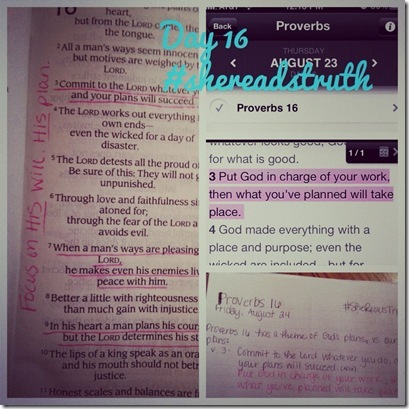 16
heart,
but from the LORD
the tongue.
2 All a man's ways seem innocen
but motives are weighed by
LORD.
3 Commit to the LORD whatever
and your plans will succeed
4 The LORD works out everything
own ends—
even the wicked for a day of
disaster.
5 The LORD detests all the proud o
Be sure of this: They will not g
unpunished.
6 Through love and faithfulness si
atoned for;
through the fear of the LORD
avoids evil.
7 When a man's ways are pleasing
LORD,
he makes even his enemies liv
peace with him.
8 Better a little with righteousness
than much gain with injustice
9 In his heart a man plans his cour
but the LORD determines his st
10 The lips of a king speak as an ora
and his mouth should not betr
justice.
11 Honest scales and balances are f
Focus on HIS Will. HIS Plan.
Day 16
#shereadstruth
Back
Proverbs
THURSDAY
AUGUST 23
Proverbs 16
whatever looks good; Go
for what is good.
1 / 1
3 Put God in charge of your work,
then what you've planned will take
place.
4 God made everything with a
place and purpose; even the
wicked are included—but for
Proverbs 16
Friday, August 24
#SheReadsTru
Proverbs 16 has a theme of God's plans, vs our
plans:
v. 3 - Commit to the Lord whatever you do,
your plans will succeed
Put God in charge of your work,
what you've planned will take